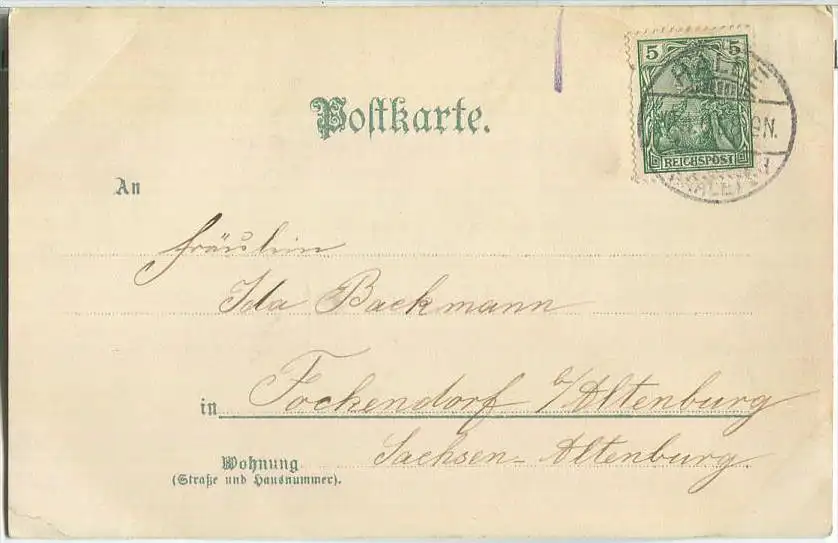 5 5
REICHSPOST
Postkarte.
An
Fräulein
Ida Backmann
in Fockendorf b/Altenburg
Sachsen-Altenburg
Wohnung
(Straße und Hausnummer).